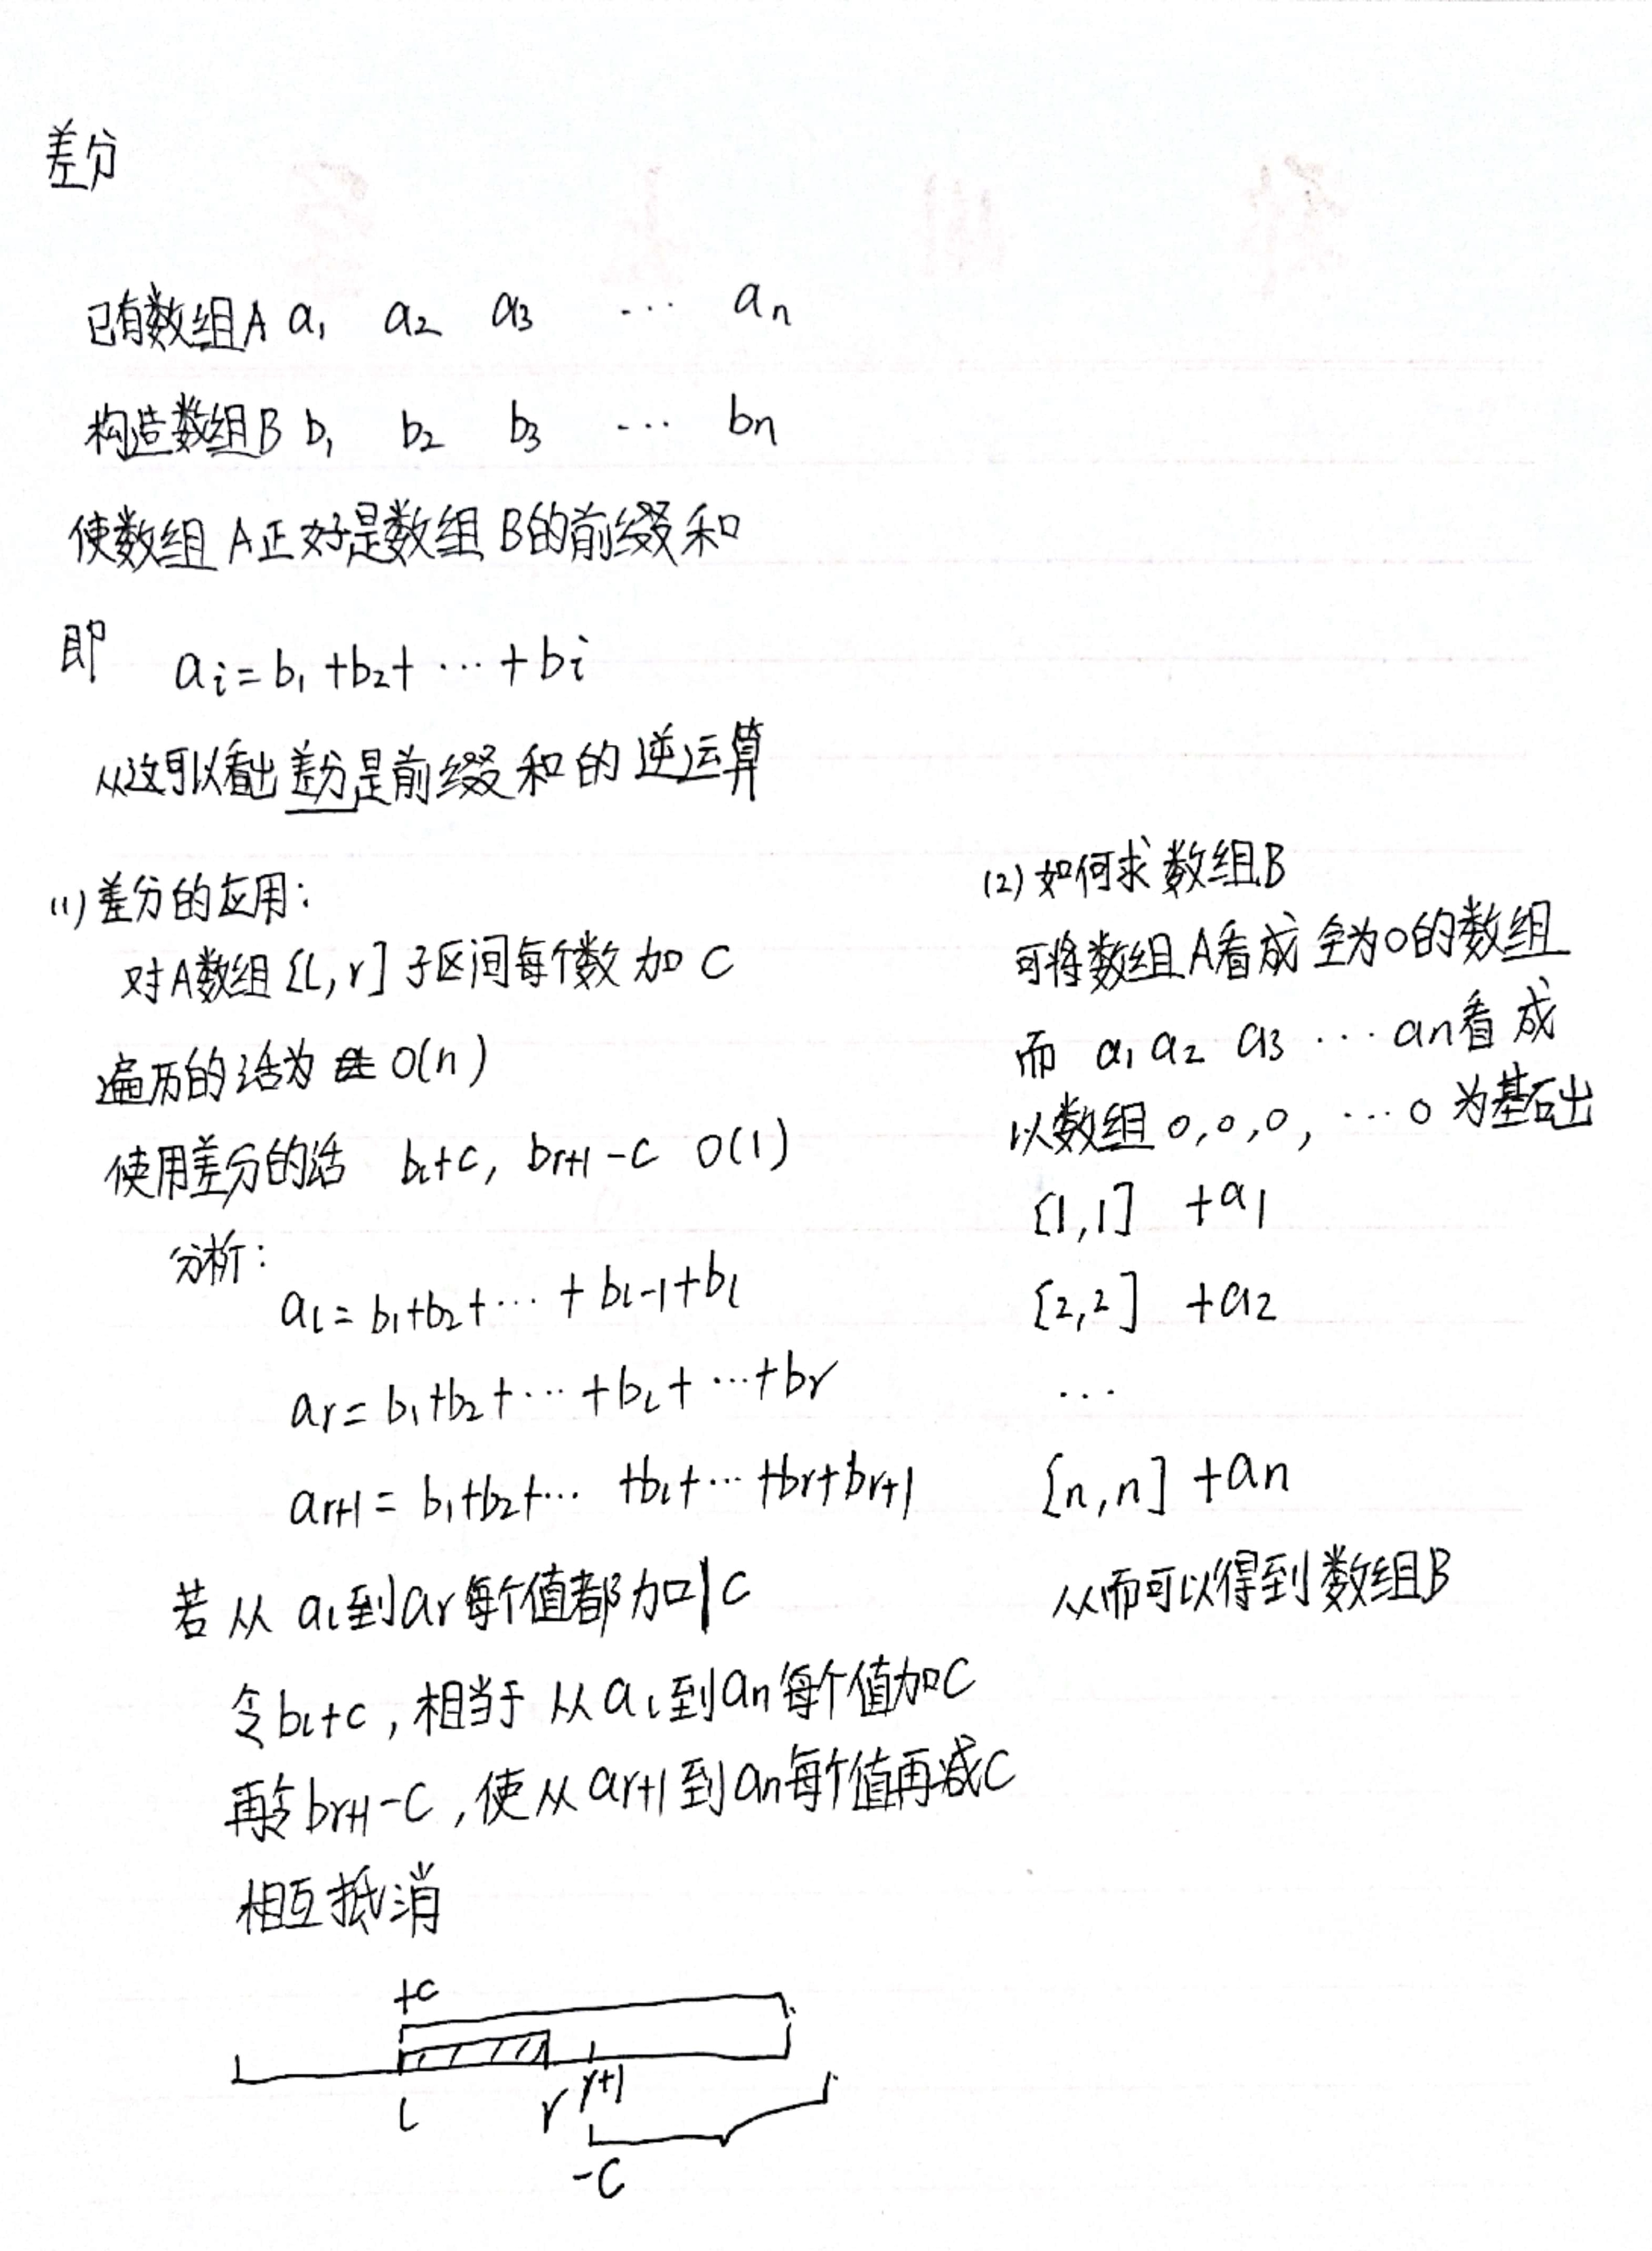 差分
已有数组A a₁ a₂ a₃ ... aₙ
构造数组B b₁ b₂ b₃ ... bₙ
使数组A正好是数组B的前缀和
即 aᵢ=b₁+b₂+...+bᵢ
从这可以看出差分是前缀和的逆运算
(1)差分的应用：
对A数组[l,r]子区间每个数加C
遍历的话为 O(n)
使用差分的话 bl+c, br+1-c O(1)
分析：
al=b₁+b₂+...+bl-1+bl
ar=b₁+b₂+...+bl+...+br
ar+1=b₁+b₂+... +bl+...+br+br+1
若从al到ar每个值都加C
令bl+c,相当于从al到an每个值加C
再令br+1-C,使从ar+1到an每个值再减C
相互抵消
+c
l r r+1
-C
(2)如何求数组B
可将数组A看成全为0的数组
而 a₁ a₂ a₃ ... an看成
以数组0,0,0,...0为基础出
[1,1] +a1
[2,2] +a2
...
[n,n] +an
从而可以得到数组B